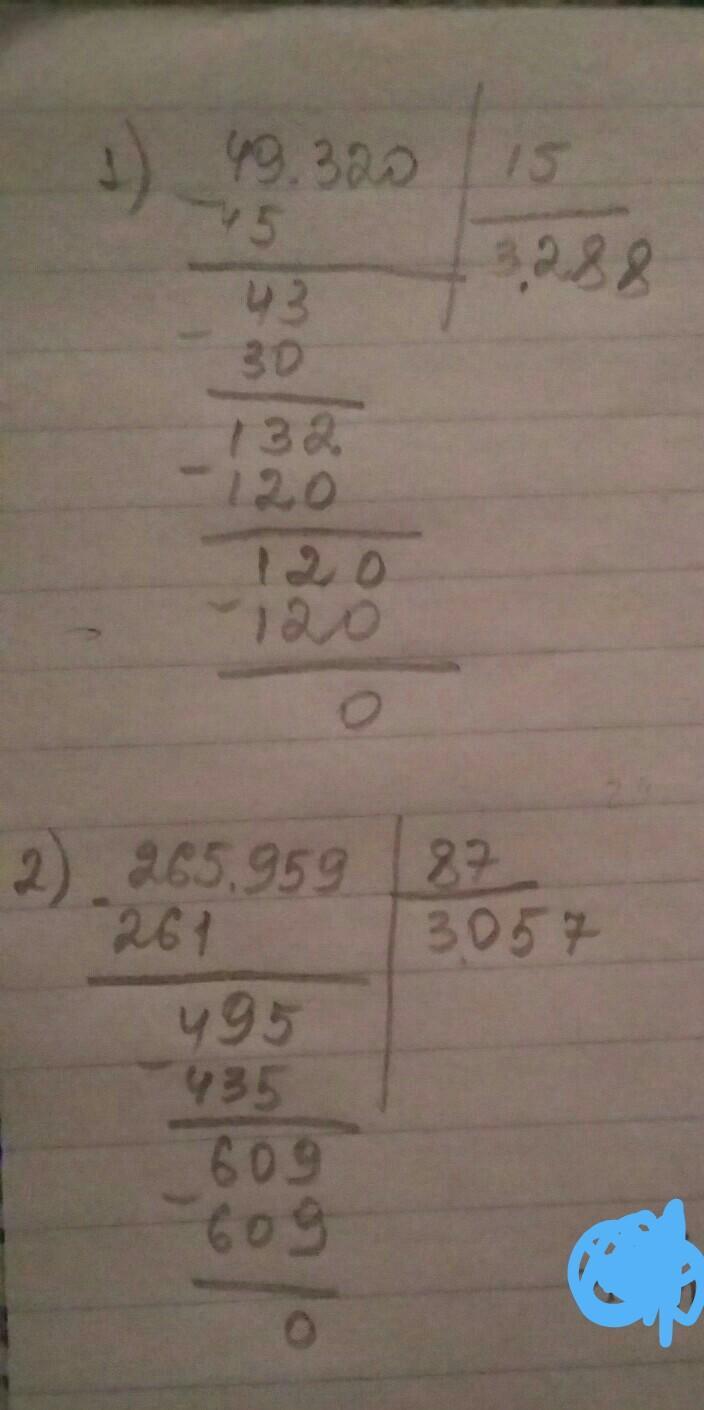 1) 49.320 15
- 45 3.288
43
- 30
132
- 120
120
- 120
0
2) 265.959 87
- 261 3.057
495
- 435
609
- 609
0